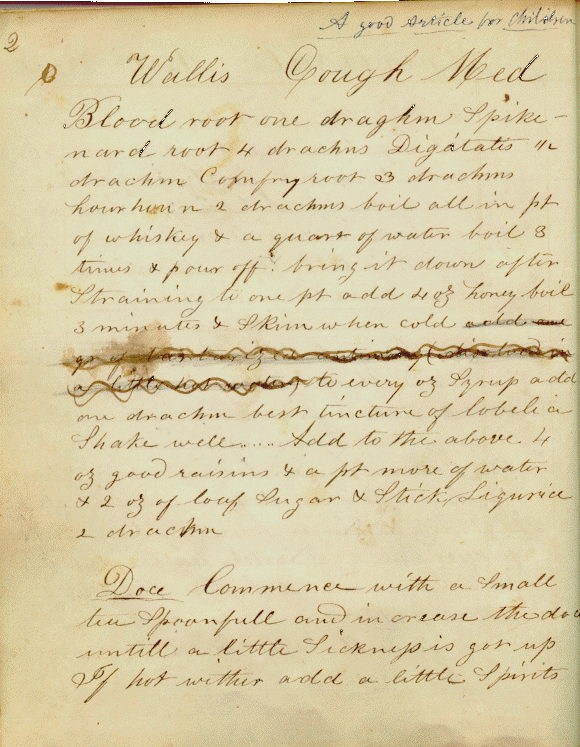 A good Article for Children
2
Wallis Cough Med
Blood root one draghm Spike-
nard root 4 drachms Digatatis "2
drachm Comfry root 3 drachms
hourhoun 2 drachms boil all in pt
of whiskey & a quart of water boil 3
times & pour off. bring it down after
Straining to one pt add 4 oz honey boil
3 minutes & Skim when cold add one
gr of
a little hot water) to every oz Syrup add
one drachm best tincture of lobelia
Shake well..... Add to the above 4
oz good raisins & a pt more of water
& 2 oz of loaf Sugar & Stick Ligurice
2 drachm
Doce Commence with a Small
tea Spoonfull and increase the doce
untill a little Sickness is got up
If hot wither add a little Spirits